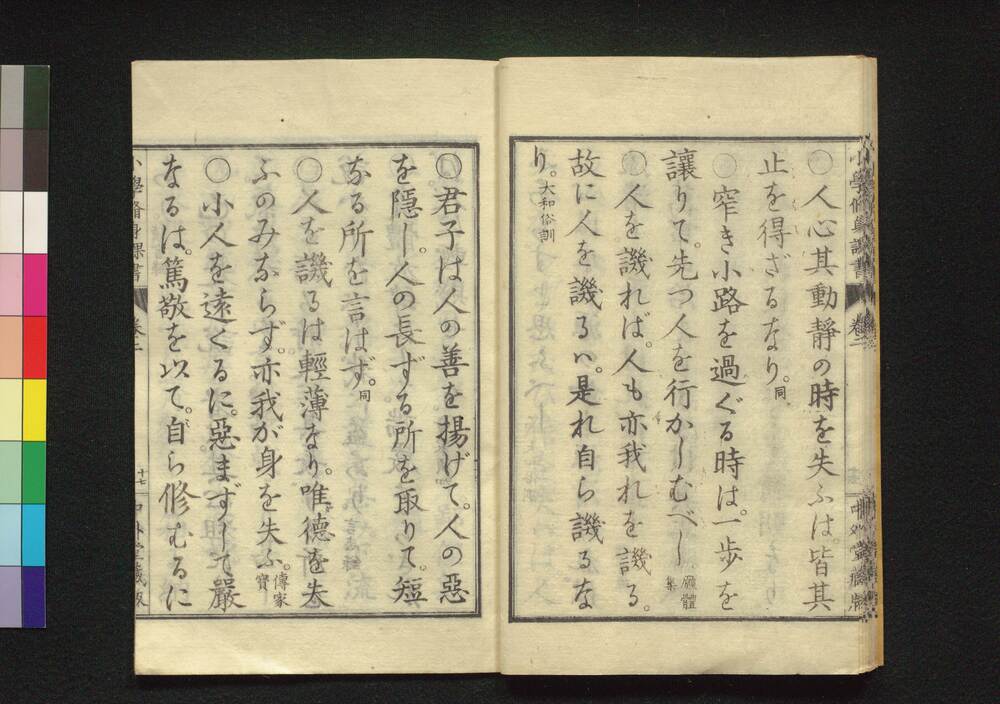 小學脩身課書
卷二
中外堂藏版
〇人心其動靜の時を失ふは皆其
止を得ざるなり。同
〇窄き小路を過ぐる時は。一歩を
讓りて。先つ人を行かしむべし 願體集
〇人を譏れば。人も亦我れを譏る。
故に人を譏るハ。是れ自ら譏るな
り。大和俗訓
〇君子は人の善を揚げて。人の惡
を隱し。人の長ずる所を取りて。短
なる所を言はず。同
〇人を譏るは輕薄なり。唯德を失
ふのみならず。亦我が身を失ふ。傳家寶
〇小人を遠くるに。惡まずして嚴
なるは。篤敬を以て。自ら修むるに
小學脩身課書
卷二
十七
中外堂藏版